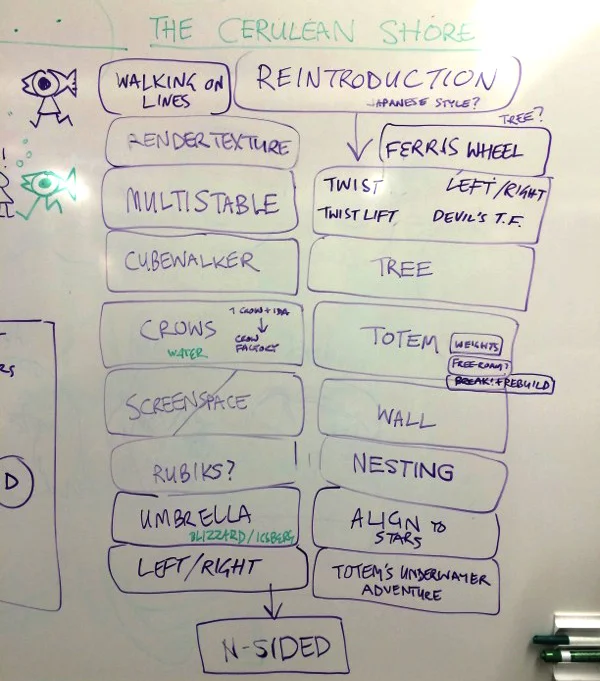 THE CERULEAN SHORE
WALKING ON
LINES
REINTRODUCTION
JAPANESE STYLE?
TREE?
RENDERTEXTURE
FERRIS WHEEL
MULTISTABLE
TWIST
LEFT/RIGHT
TWIST LIFT
DEVIL'S T.F.
CUBEWALKER
TREE
CROWS
1 CROW + IDA
CROW
FACTORY
WATER
TOTEM
WEIGHTS
FREE-ROAM?
BREAK! + REBUILD
SCREENSPACE
WALL
RUBIKS?
NESTING
UMBRELLA
BLIZZARD/ICEBERG
ALIGN TO
STARS
LEFT/RIGHT
TOTEM'S UNDERWATER
ADVENTURE
N-SIDED
D